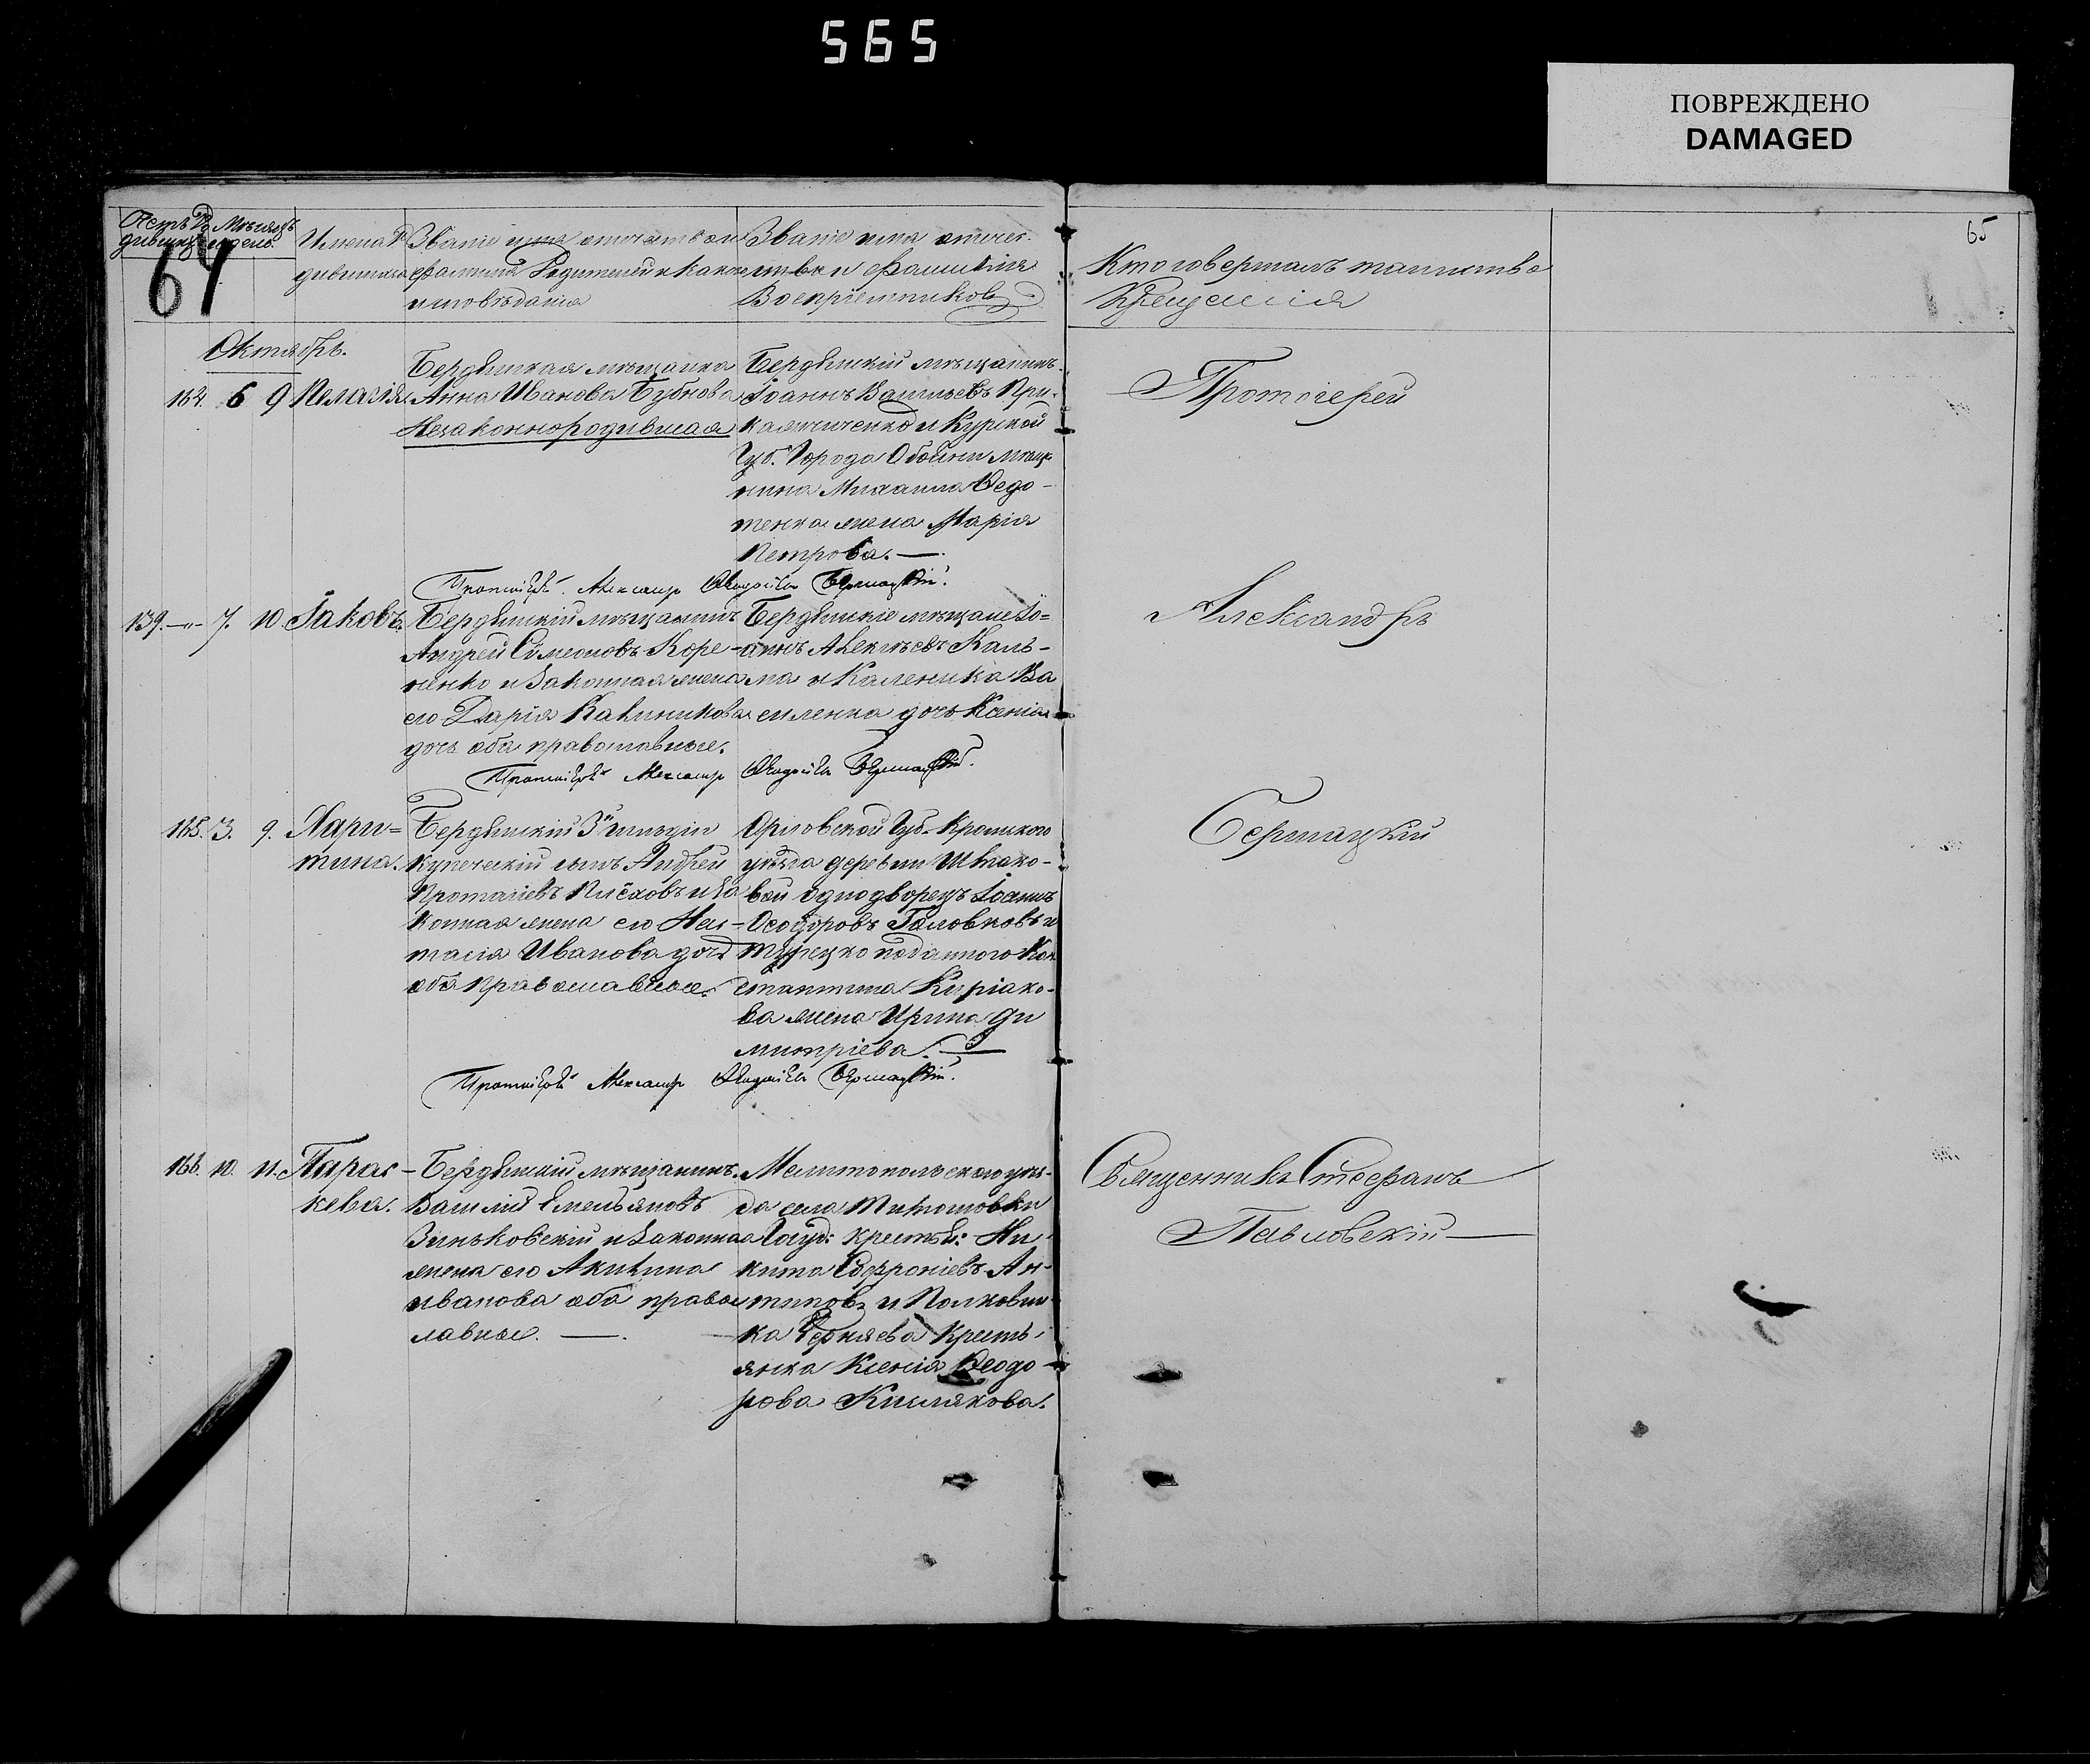 565
ПОВРЕЖДЕНО
DAMAGED
65
64
Имена Ро Званіе имя отчество и Званіе имя отчес-
дившихся фамилія Родителей и какого тво и фамилія
исповѣданія Воспріемниковъ
Кто совершалъ таинство
Крещенія
Октябрь.
164. 6 9 Пелагія
Бердянская мѣщанка
Анна Иванова Бубнова
Незаконнорожденная
Бердянскій мѣщанинъ
Іоаннъ Васильевъ При-
и Курской
Губ. Города Обояни мѣща
нина Михаила Ѳедо-
тенка жена Марія
Петрова.—
Протоіерей
Протоіерей Александр
139. —"— 7. 10. Іаковъ.
Бердянскій мѣщанинъ
Андрей Симеоновъ Коре-
ненко и законная жена
его Дарія Калиникова
дочь оба православные.
Бердянскіе мѣщане Іо=
аннъ Алексѣевъ Каль-
ма и Каленика Ва
силенка дочь Ксенія
Александръ
Протоіерей Александр
165. 3. 9. Хари=
тина.
Бердянскій 3й гильдіи
купеческій сынъ Андрей
и За
конная жена его Нас-
тасія Иванова дочь
оба православные.
Орловской Губ. Кромского
уѣзда деревни Шпако-
вой однодворецъ Іоаннъ
Ѳеодоровъ Головковъ и
Турецко подданного Кон
стантина Киріако-
ва жена Ирина Ди
митріева.—
Бермацкій
Протоіерей Александр
166. 10. 11. Парас-
кева.
Бердянскій мѣщанинъ
Василій Емельяновъ
Зиньковскій и законная
жена его Акилина
Иванова оба правос
лавные. —.
Мелитопольского уѣз-
да села Тимошовки
Госуд: крестья: Ни-
кита Софроніевъ Ан-
типовъ и Полковни-
ка Черняева Кресть-
янка Ксенія Ѳеодо-
рова Кислякова.
Священникъ Стефанъ
Павловскій—